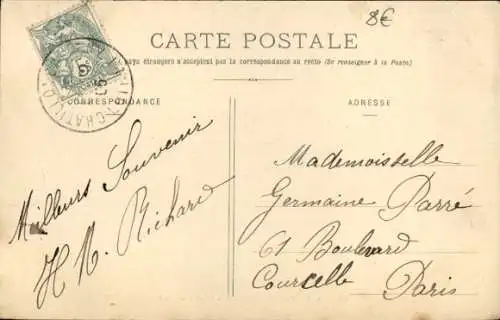 8€
CARTE POSTALE
pays étrangers n'acceptent pas la correspondance au recto (Se renseigner à la Poste)
CORRESPONDANCE
ADRESSE
Meilleurs Souvenir
H N. Richard
Mademoisselle
Germaine Parré
61 Boulevard
Courcelle Paris